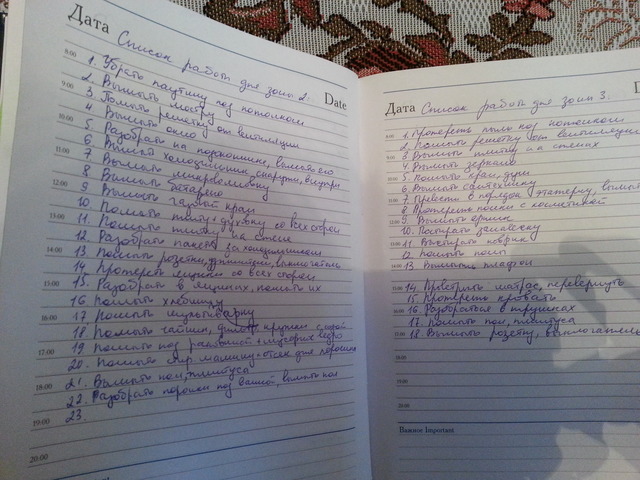 Дата Список работ для зоны 2. Date
8:00 1. Убрать паутину под потолком
2. Вымыть люстру
9:00 3. Помыть решетку от вентиляции
4 Вымыть окно
10:00 5. Разобрать на подоконнике, вымыть его
6 Вымыть холодильник, снаружи, внутри
11:00 7 Вымыть микроволновку
8 Вымыть батарею
12:00 9 Вымыть кран
10 Помыть плиту, духовку со всех сторон
11. Помыть плитку на стене
12. Разобрать пакеты за холодильником
14:00 13 Помыть розетки, выключатель
14 Протереть ящики со всех сторон
15:00 15. Разобрать в ящиках, помыть их
16 Помыть хлебницу
16:00 17 Помыть мультиварку
18 Помыть чайник, кружки с содой
17:00 19 Помыть под раковиной + мусорное ведро
20. Помыть стир машину + отсек для порошка
18:00 21. Вымыть пол, плинтуса
22. Разобрать порошки под ванной, вымыть пол
19:00 23.
20:00
Дата Список работ для зоны 3. D
8:00 1. Протереть пыль под потолком
2. Помыть решетку от вентиляции
9:00 3 Вымыть плитку на стенах
4. Вымыть зеркало
10:00 5. Помыть кран, душ
6. Вымыть сантехнику
11:00 7. Привести в порядок этажерку, вымыть
8. Протереть полки с косметикой
12:00 9. Вымыть
10. Постирать занавеску
13:00 11. Постирать коврик
12. Помыть полы
14:00 13. Вымыть плафон
15:00 14. Проветрить матрас, перевернуть
15. Протереть кровать
16:00 16. Разобраться в игрушках
17. Помыть пол, плинтуса
18. Вымыть розетку, выключатель
18:00
19:00
20:00
Важное Important